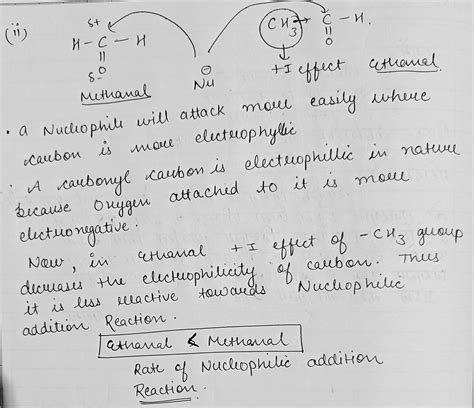 (ii)
δ+
H-C-H
O
δ-
Methanal
Nu
CH3 → C - H.
O
+I effect Ethanal.
• a Nucleophile will attack more easily where
carbon is more electrophyllic
• A carbonyl carbon is electrophillic in nature
because Oxygen attached to it is more
electronegative.
Now, in Ethanal +I effect of -CH3 group
decreases the electrophilicity of carbon. Thus
it is less reactive towards Nucleophilic
addition Reaction.
Ethanal < Methanal
Rate of Nucleophilic addition
Reaction.